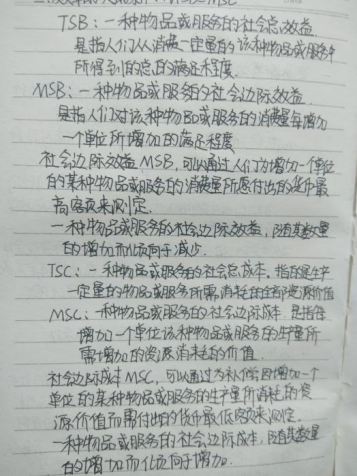 MSC
TSB：一种物品或服务的社会总效益
是指人们从消费一定量的该种物品或服务中
所得到的总的满足程度.
MSB：一种物品或服务的社会边际效益.
是指人们对该种物品或服务的消费量每增加
一个单位所增加的满足程度
社会边际效益MSB，可以通过人们为增加一个单位
的某种物品或服务的消费量所愿付出的货币最
高客款来测定.
一种物品或服务的社会边际效益，随其数量
的增加而倾向于减少.
TSC：一种物品或服务的社会总成本. 指的是生产
一定量的物品或服务所需消耗的全部资源价值
MSC：一种物品或服务的社会边际成本. 是指每
增加一个单位该种物品或服务的生产量所
需增加的资源消耗的价值.
社会边际成本MSC，可以通过为补偿因增加一个
单位的某种物品或服务的生产量所消耗的资
源价值而需付出的货币最低客款来测定.
一种物品或服务的社会边际成本，随其数量
的增加而倾向于增加.